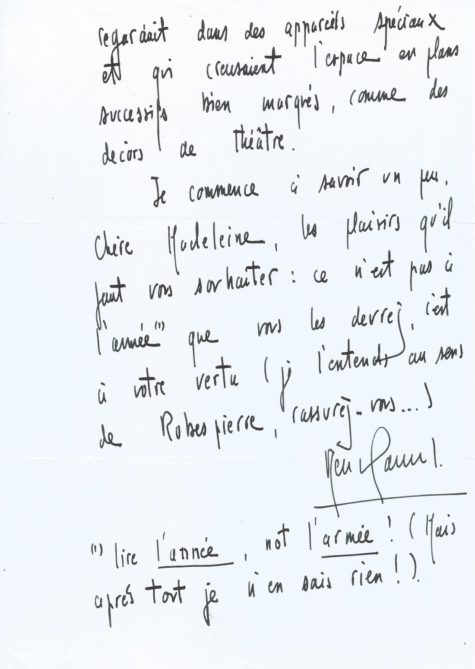 regardait dans des appareils spéciaux
et qui creusaient l'espace en plans
successifs bien marqués, comme des
decors de théâtre.
Je commence à savoir un peu,
Chère Madeleine, les plaisirs qu'il
faut vous souhaiter : ce n'est pas à
l'année⁽¹⁾ que vous les devrez, c'est
à votre vertu (je l'entends au sens
de Robespierre, rassurez-vous...)
⁽¹⁾ lire l'année, not l'armée ! (Mais
après tout je n'en sais rien !).